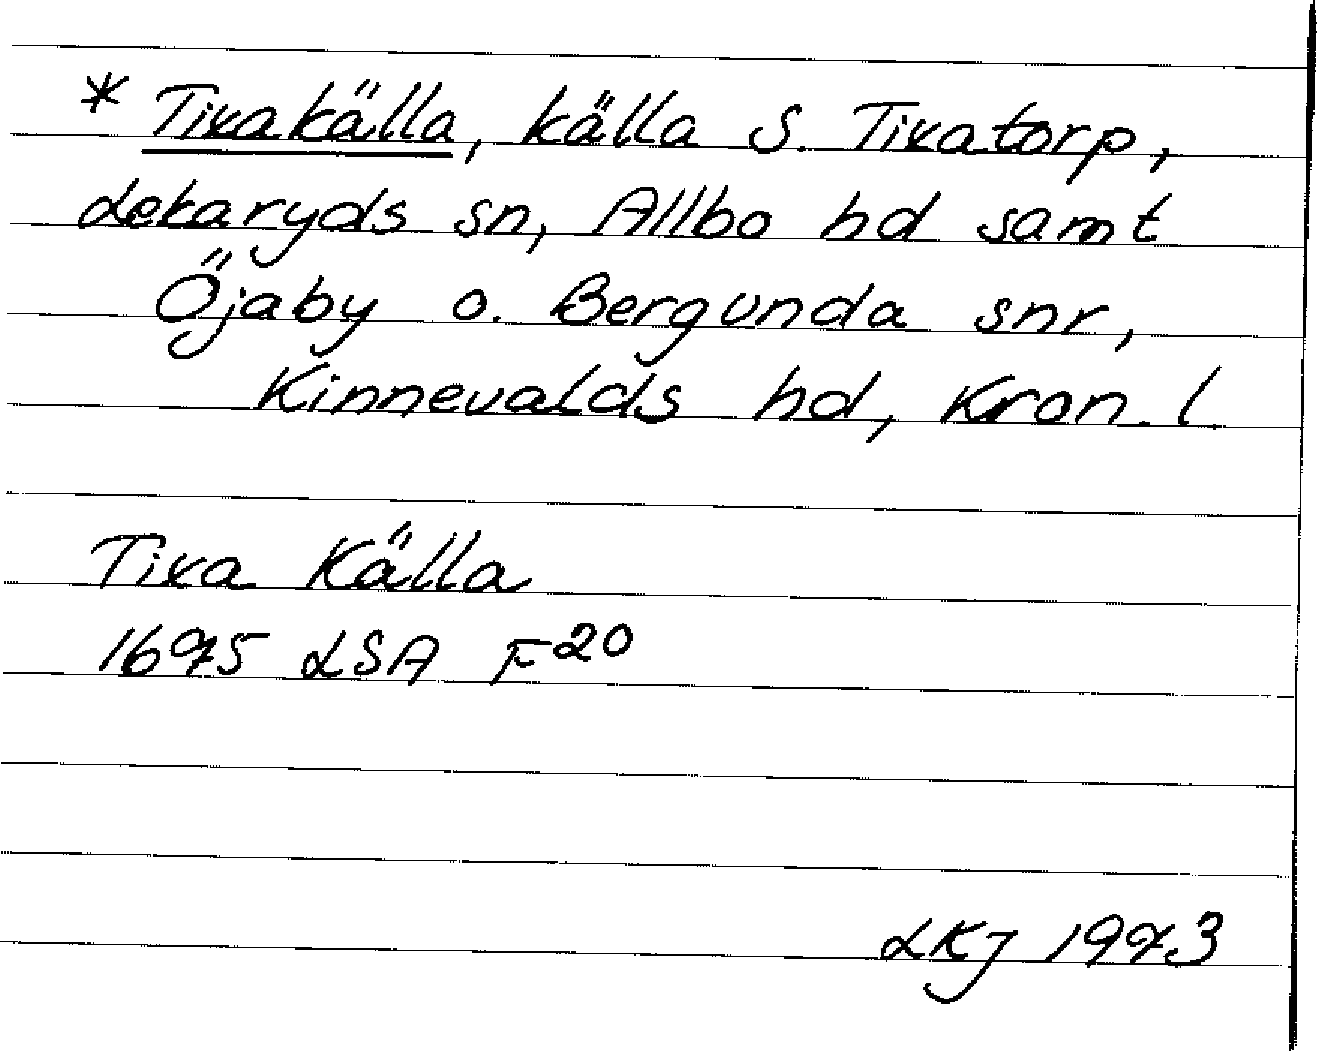 * Tixakälla, källa S. Tixatorp,
Lekaryds sn, Allbo hd samt
Öjaby o. Bergunda snr,
Kinnevalds hd, Kron. l.
Tixa Källa
1695 LSA F20
LKJ 1973